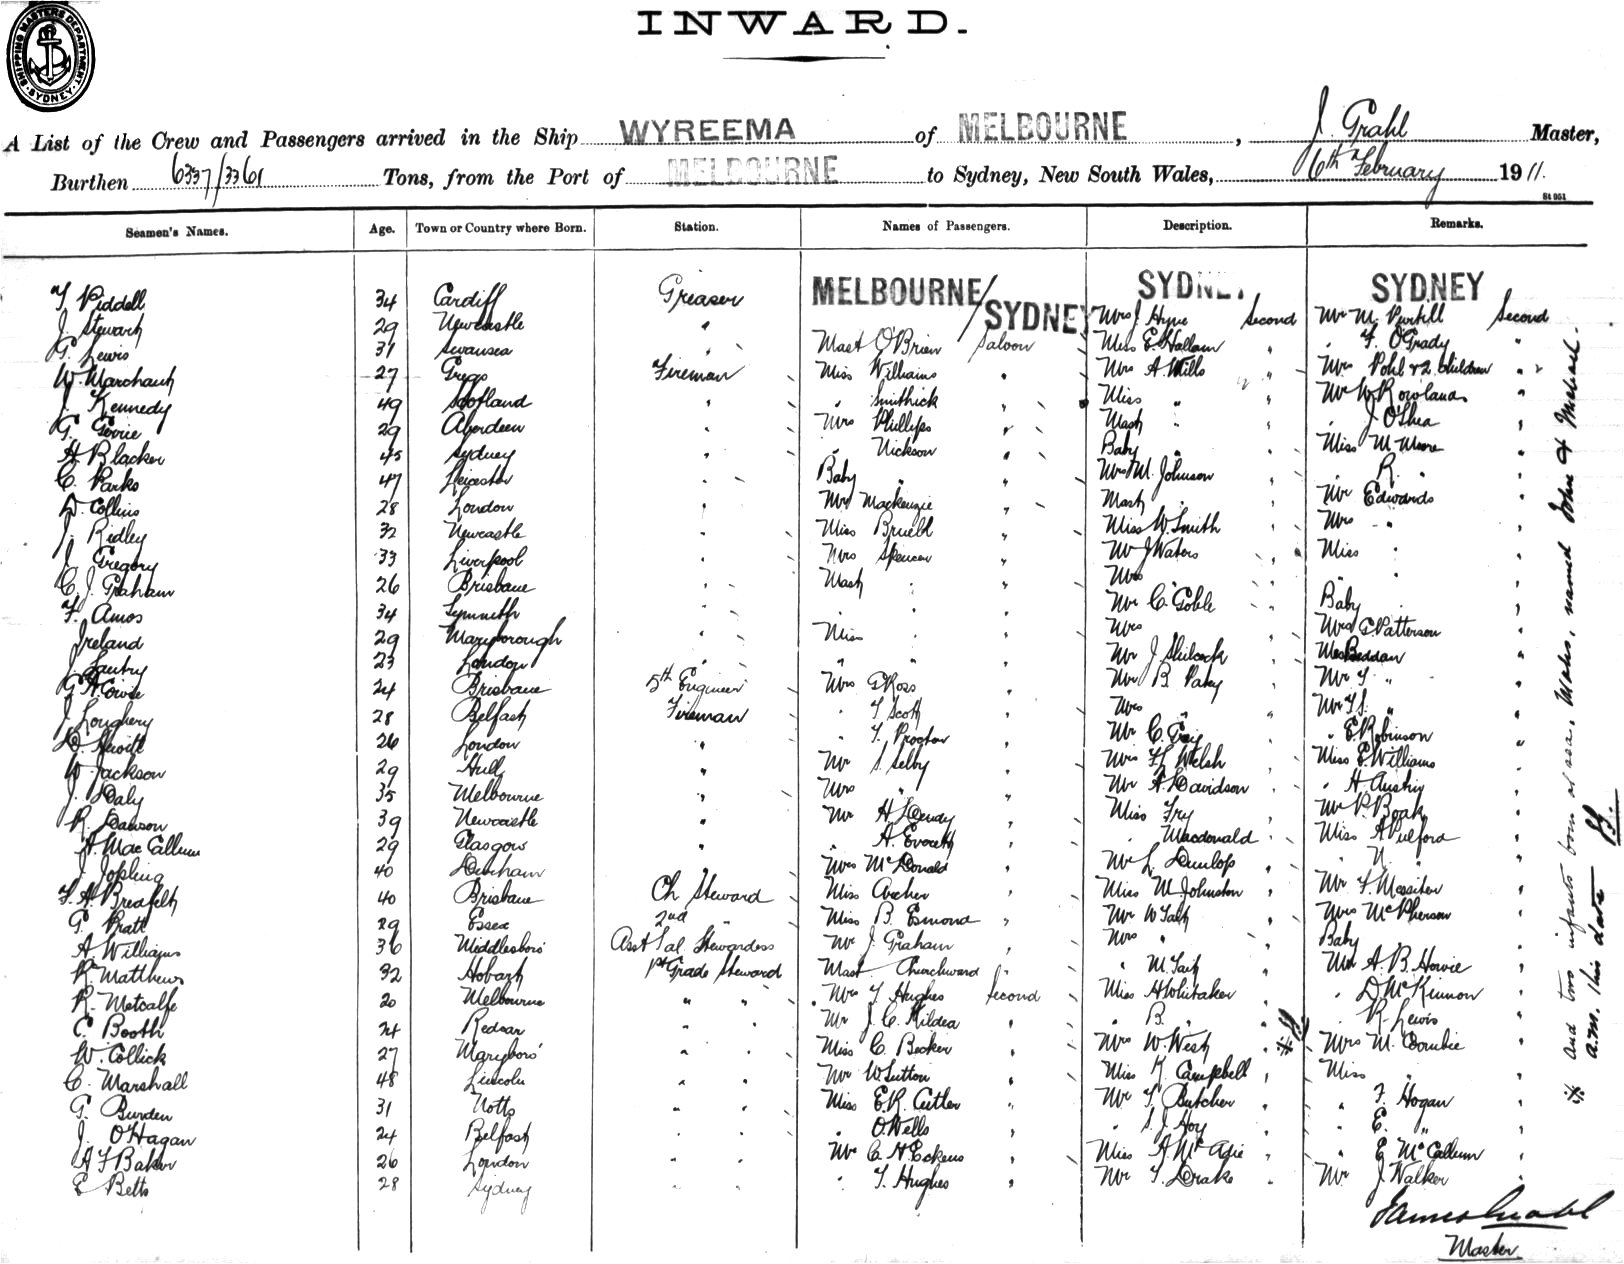 SHIPPING MASTERS DEPARTMENT. SYDNEY.
INWARD.
A List of the Crew and Passengers arrived in the Ship WYREEMA of MELBOURNE, J. Grahl Master,
Burthen 6337/3361 Tons, from the Port of MELBOURNE to Sydney, New South Wales, 6th February 1911.
St 951
Seamen's Names. Age. Town or Country where Born. Station. Names of Passengers. Description. Remarks.
MELBOURNE/SYDNEY SYDNEY SYDNEY
34 Cardiff Greaser Mrs J Hyne Second Mr M. Purtill Second
J. Stewart 29 Newcastle "
G. Lewis 31 Swansea " Mast O'Brien Saloon Miss E Hallam " F. O'Grady "
W. Marchant 27 Fireman Miss Williams " Mrs A. Mills " Mrs Pohl & 2 Children "
J. Kennedy 49 Scotland " " Smithick " Miss " " Mr W. Rowland "
G. 29 Aberdeen " Mrs Phillips " Mast " " J O'Shea "
H Blacker 45 Sydney " " Nickson " Baby " " Miss M Moore "
C. Parks 47 Leicester " Baby " " Mrs M. Johnson " " R. " "
D. Collins 28 London " Mrs Mackenzie " Mast " " Mr Edwards "
J. Ridley 32 Newcastle " Miss Bruell " Miss W. Smith " Mrs " "
J. Gregory 33 Liverpool " Mrs Spencer " Mr J Waters " Miss " "
C. J. Graham 26 Brisbane " Mast " " Mrs " "
F. Amos 34 " " " " Mr C. Goble " Baby " "
Ireland 29 Maryborough " Miss " " Mrs " " Mrs C Patterson "
J. Lautry 23 London " " " " Mr J Shilcock " Beddan "
G. A. 24 Brisbane 5th Engineer Mrs G Ross " Mr B. " Mr F. " "
J. Loughery 28 Belfast Fireman " F Scott " Mrs " " "
D. Hewitt 26 London " " F. Proctor " Mr C. " " E Robinson "
W Jackson 29 Hull " Mr S. Selby " Welsh " Miss E Williams "
J. Daly 35 Melbourne " Mrs " " Mr A Davidson " " H Austin "
R. Dawson 39 Newcastle " Mr H Dendy " Miss Fry " Mr P. Boak "
A. Mac Callum 29 Glasgow " " A. Everett " " Macdonald " Miss A Pulford "
J Jopling 40 Durham " Mrs McDonald " Mr L. Dunlop " " N. " "
F. A. Breafelt 40 Brisbane Ch Steward Miss Archer " Miss M Johnston " Mr F. Messiter "
G. Pratt 29 Essex 2nd " Miss B. Esmond " Mr W Tait " Mrs McPherson "
A. Williams 36 Middlesboro' Asst Sal. Stewardess Mr J. Graham " Mrs " " Baby " "
R. Matthews 32 Hobart 1st Grade Steward Mast Churchward " " M. Tait " Mr A. B. Howie "
R. Metcalfe 20 Melbourne " " Mrs F Hughes Second Miss A Whitaker " " D McKinnon "
C. Booth 24 Redcar " " Mr J. C. Kildea " " B. " " " R. Lewis "
W. Collick 27 Maryboro' " " Miss C. Becker " Mrs W. West " Mrs M. Combie "
C. Marshall 48 Lincoln " " Mr W Sutton " Miss K. Campbell " Miss " "
G. Burden 31 Notts " " Miss E. R. Cutler " Mr F Butcher " " F. Hogan "
J. O'Hagan 24 Belfast " " " O. Wells " " S. J. Hoy " " E. " "
A F Baker 26 London " " Mr C. H. Eckens " Miss A McAdie " " E McCallum "
E Betts 28 Sydney " " " F. Hughes " Mr F. Drake " Mr J. Walker "
James Grahl
Master
* and two infants born at sea, Males, named John & Michael.
a.m. this date JG.
* JG